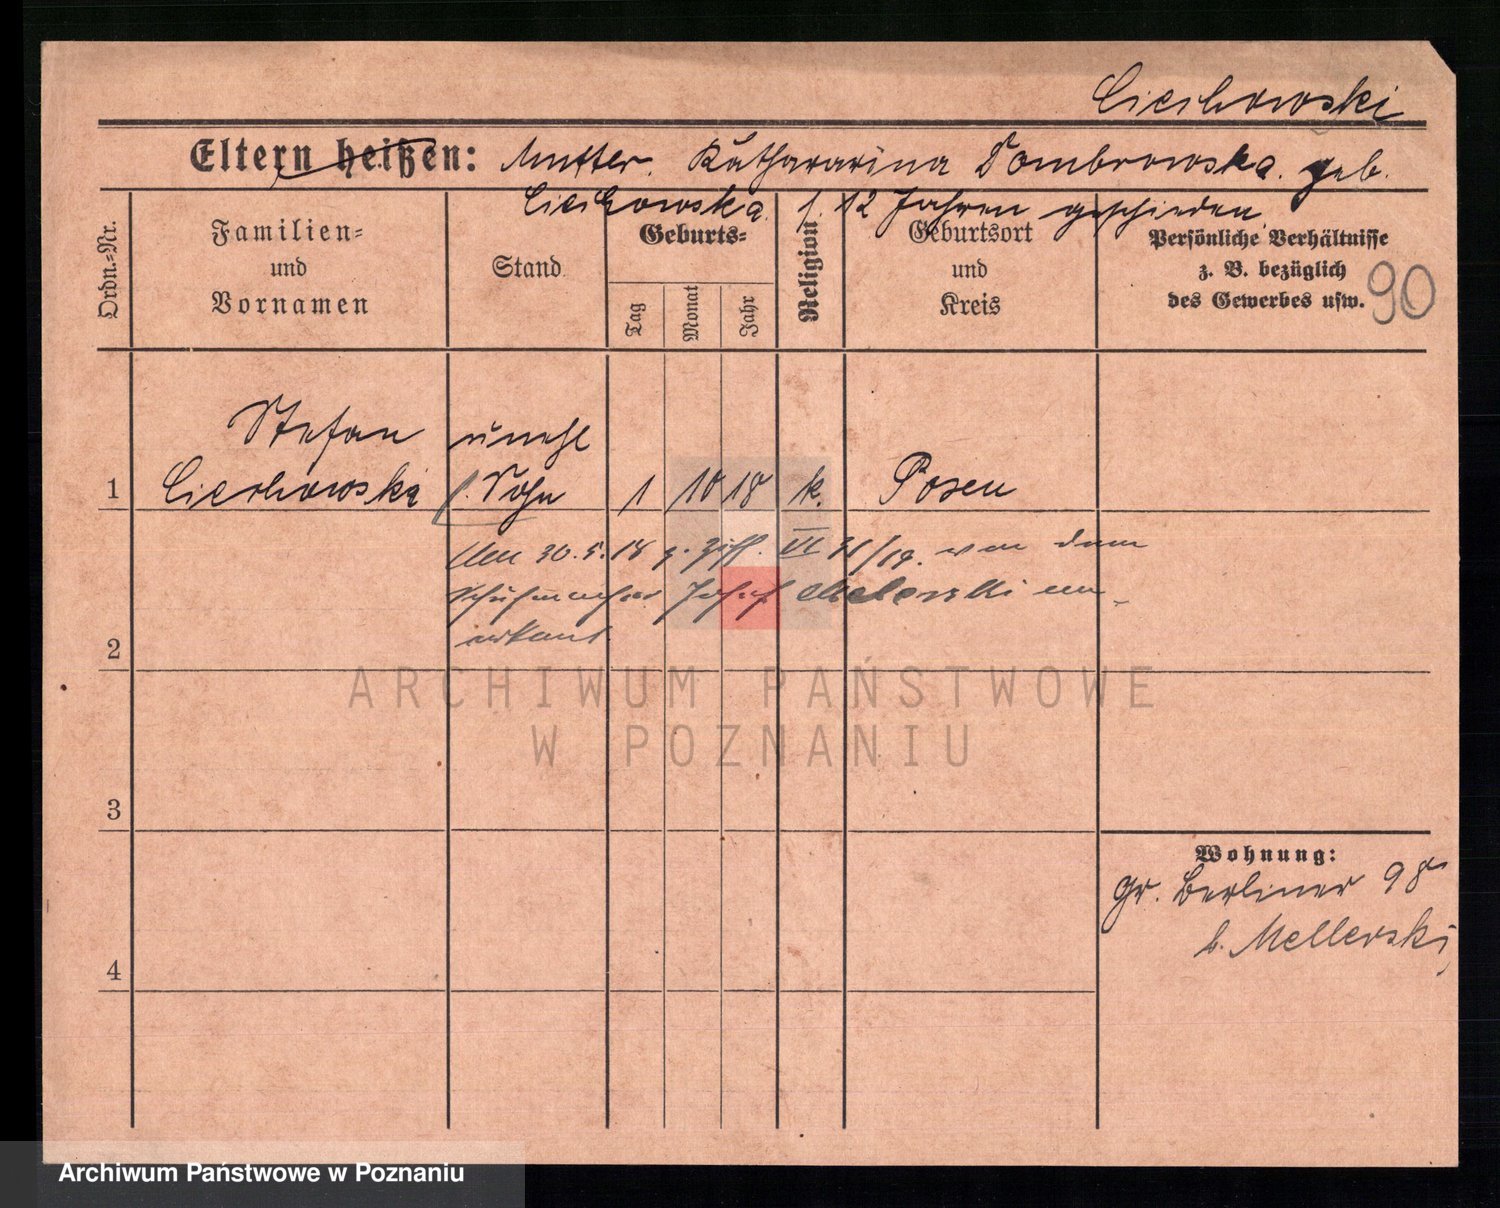 Ciechowski
Eltern heißen: Mutter. Kathararina Dombrowska. geb.
Ciechowska. s. 12 Jahren geschieden
Ordn.-Nr.
Familien-
und
Vornamen
Stand
Geburts-
Tag
Monat
Jahr
Religion
Geburtsort
und
Kreis
Persönliche Verhältnisse
z. B. bezüglich
des Gewerbes usw.
90
Stefan unehl
1 Ciechowski Sohn 1 10 18 k. Posen
30.5.18 g. Ziff. VI 31/19. von dem
Schuhmacher Josef an-
erkannt
2
ARCHIWUM PAŃSTWOWE
W POZNANIU
3
Wohnung:
Gr. Berliner 98
b. Mellerski
4
Archiwum Państwowe w Poznaniu